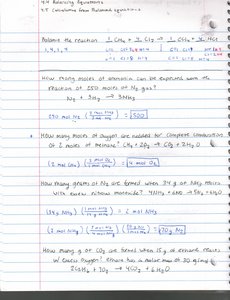 4.4 Balancing Equations
4.5 Calculations from Balanced Equations
Balance the reaction 1 CH4 + 4 Cl2 → 1 CCl4 + 4 HCl
1, 4, 1, 4
How many moles of ammonia can be expected from the
reaction of 250 mols of N2 gas?
N2 + 3H2 → 2NH3
250 mol N2 = 500
How many moles of oxygen are needed for complete combustion
of 2 moles of methane? CH4 + 2O2 → CO2 + 2H2O
(2 mol CH4) = 4 mol O2
How many grams of N2 are formed when 34 g of NH3 reacts
with excess nitrous monoxide? 4NH3 + 6NO → 5N2 + 6H2O
(34g NH3) = 2 mol NH3
(2 mol NH3) = 70g N2
How many g of CO2 are formed when 15 g of ethane reacts
w/ excess oxygen? ethane has a molar mass of 30 g/mol
2C2H6 + 7O2 → 4CO2 + 6H2O